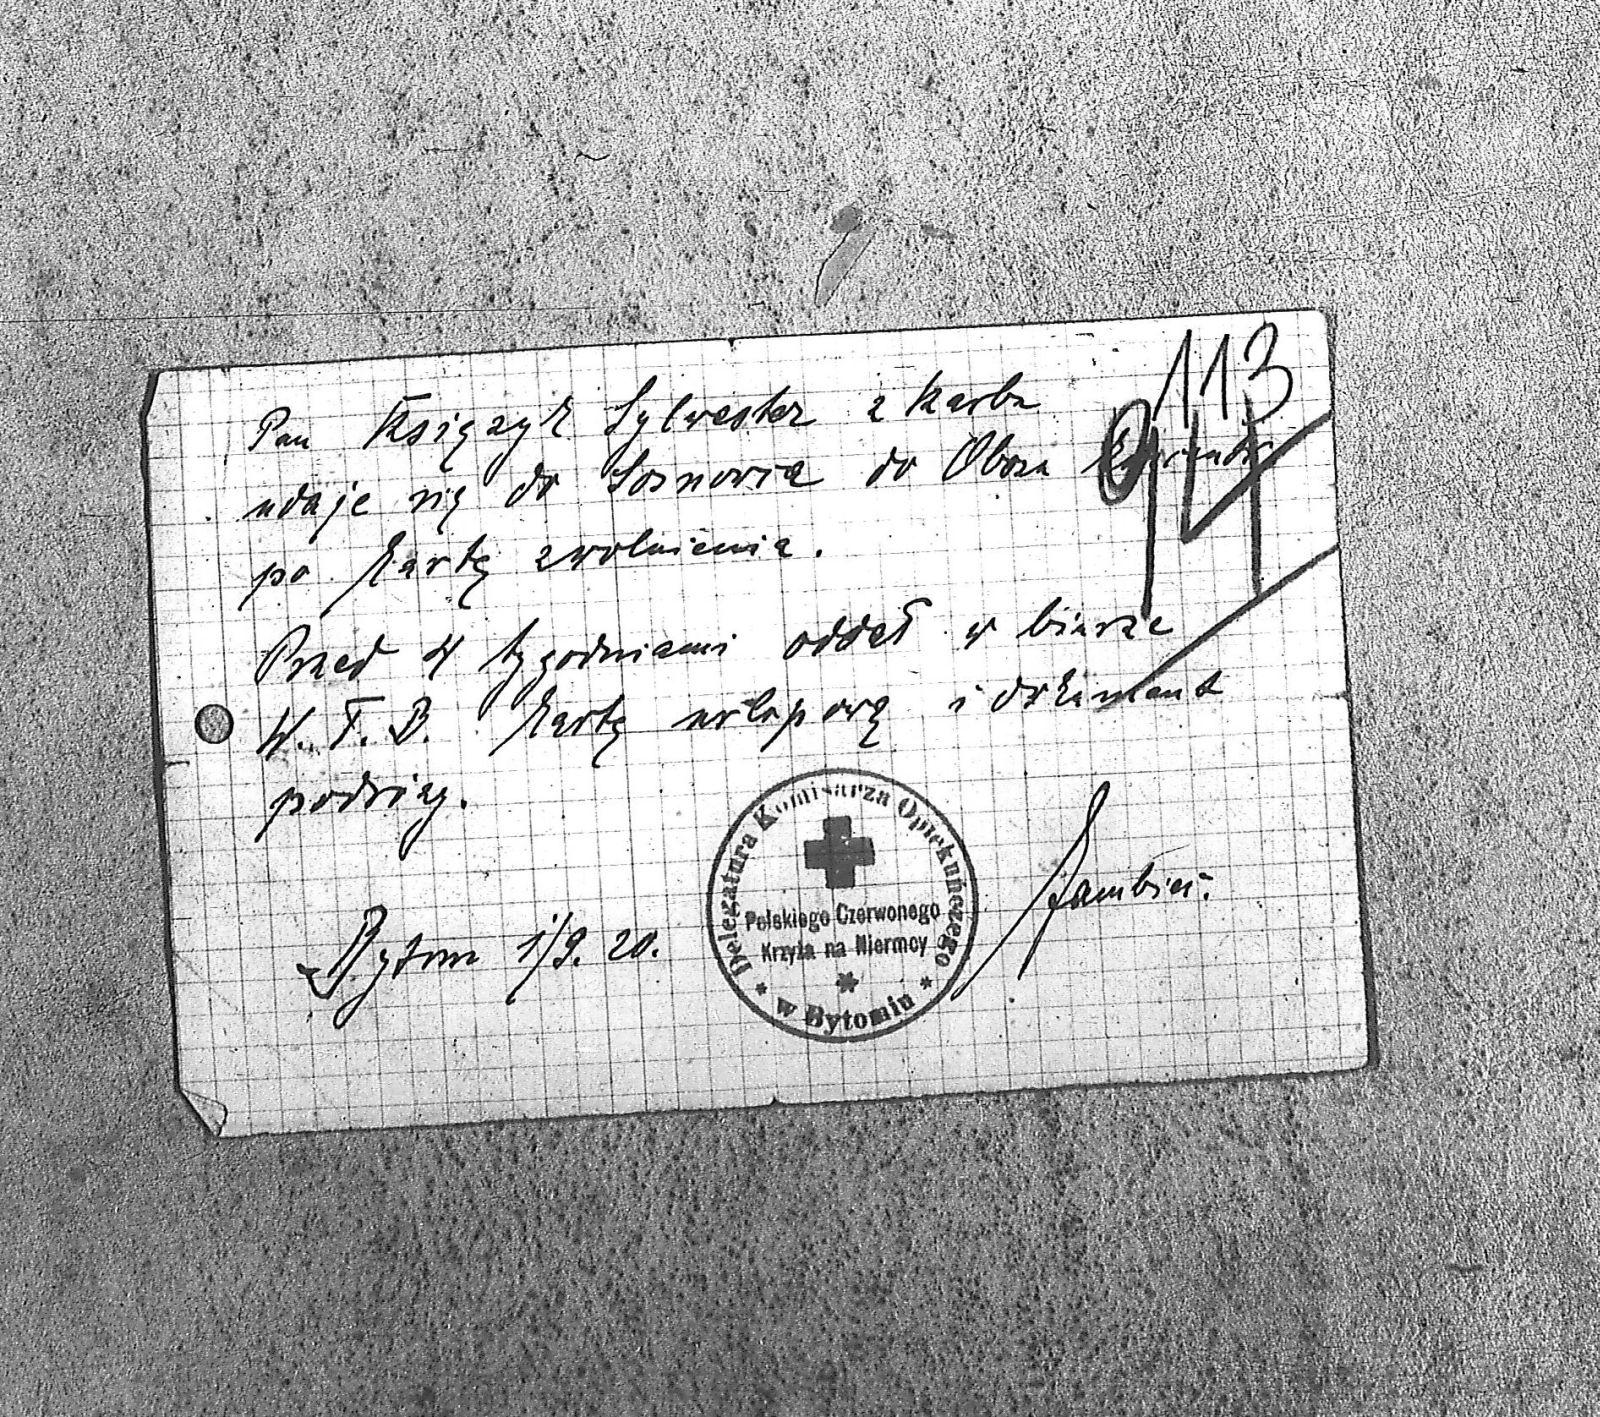 113
Pan Księżyk Sylwester z Karbu
udaje się do Sosnowca do Obozu
po kartę zwolnienia.
Przed 4 tygodniami oddał w biurze
W. F. B. kartę urlopową i dokument
podróży.
Bytom 1/9. 20.
Delegatura Komisarza Opiekuńczego
Polskiego Czerwonego
Krzyża na Niemcy
w Bytomiu